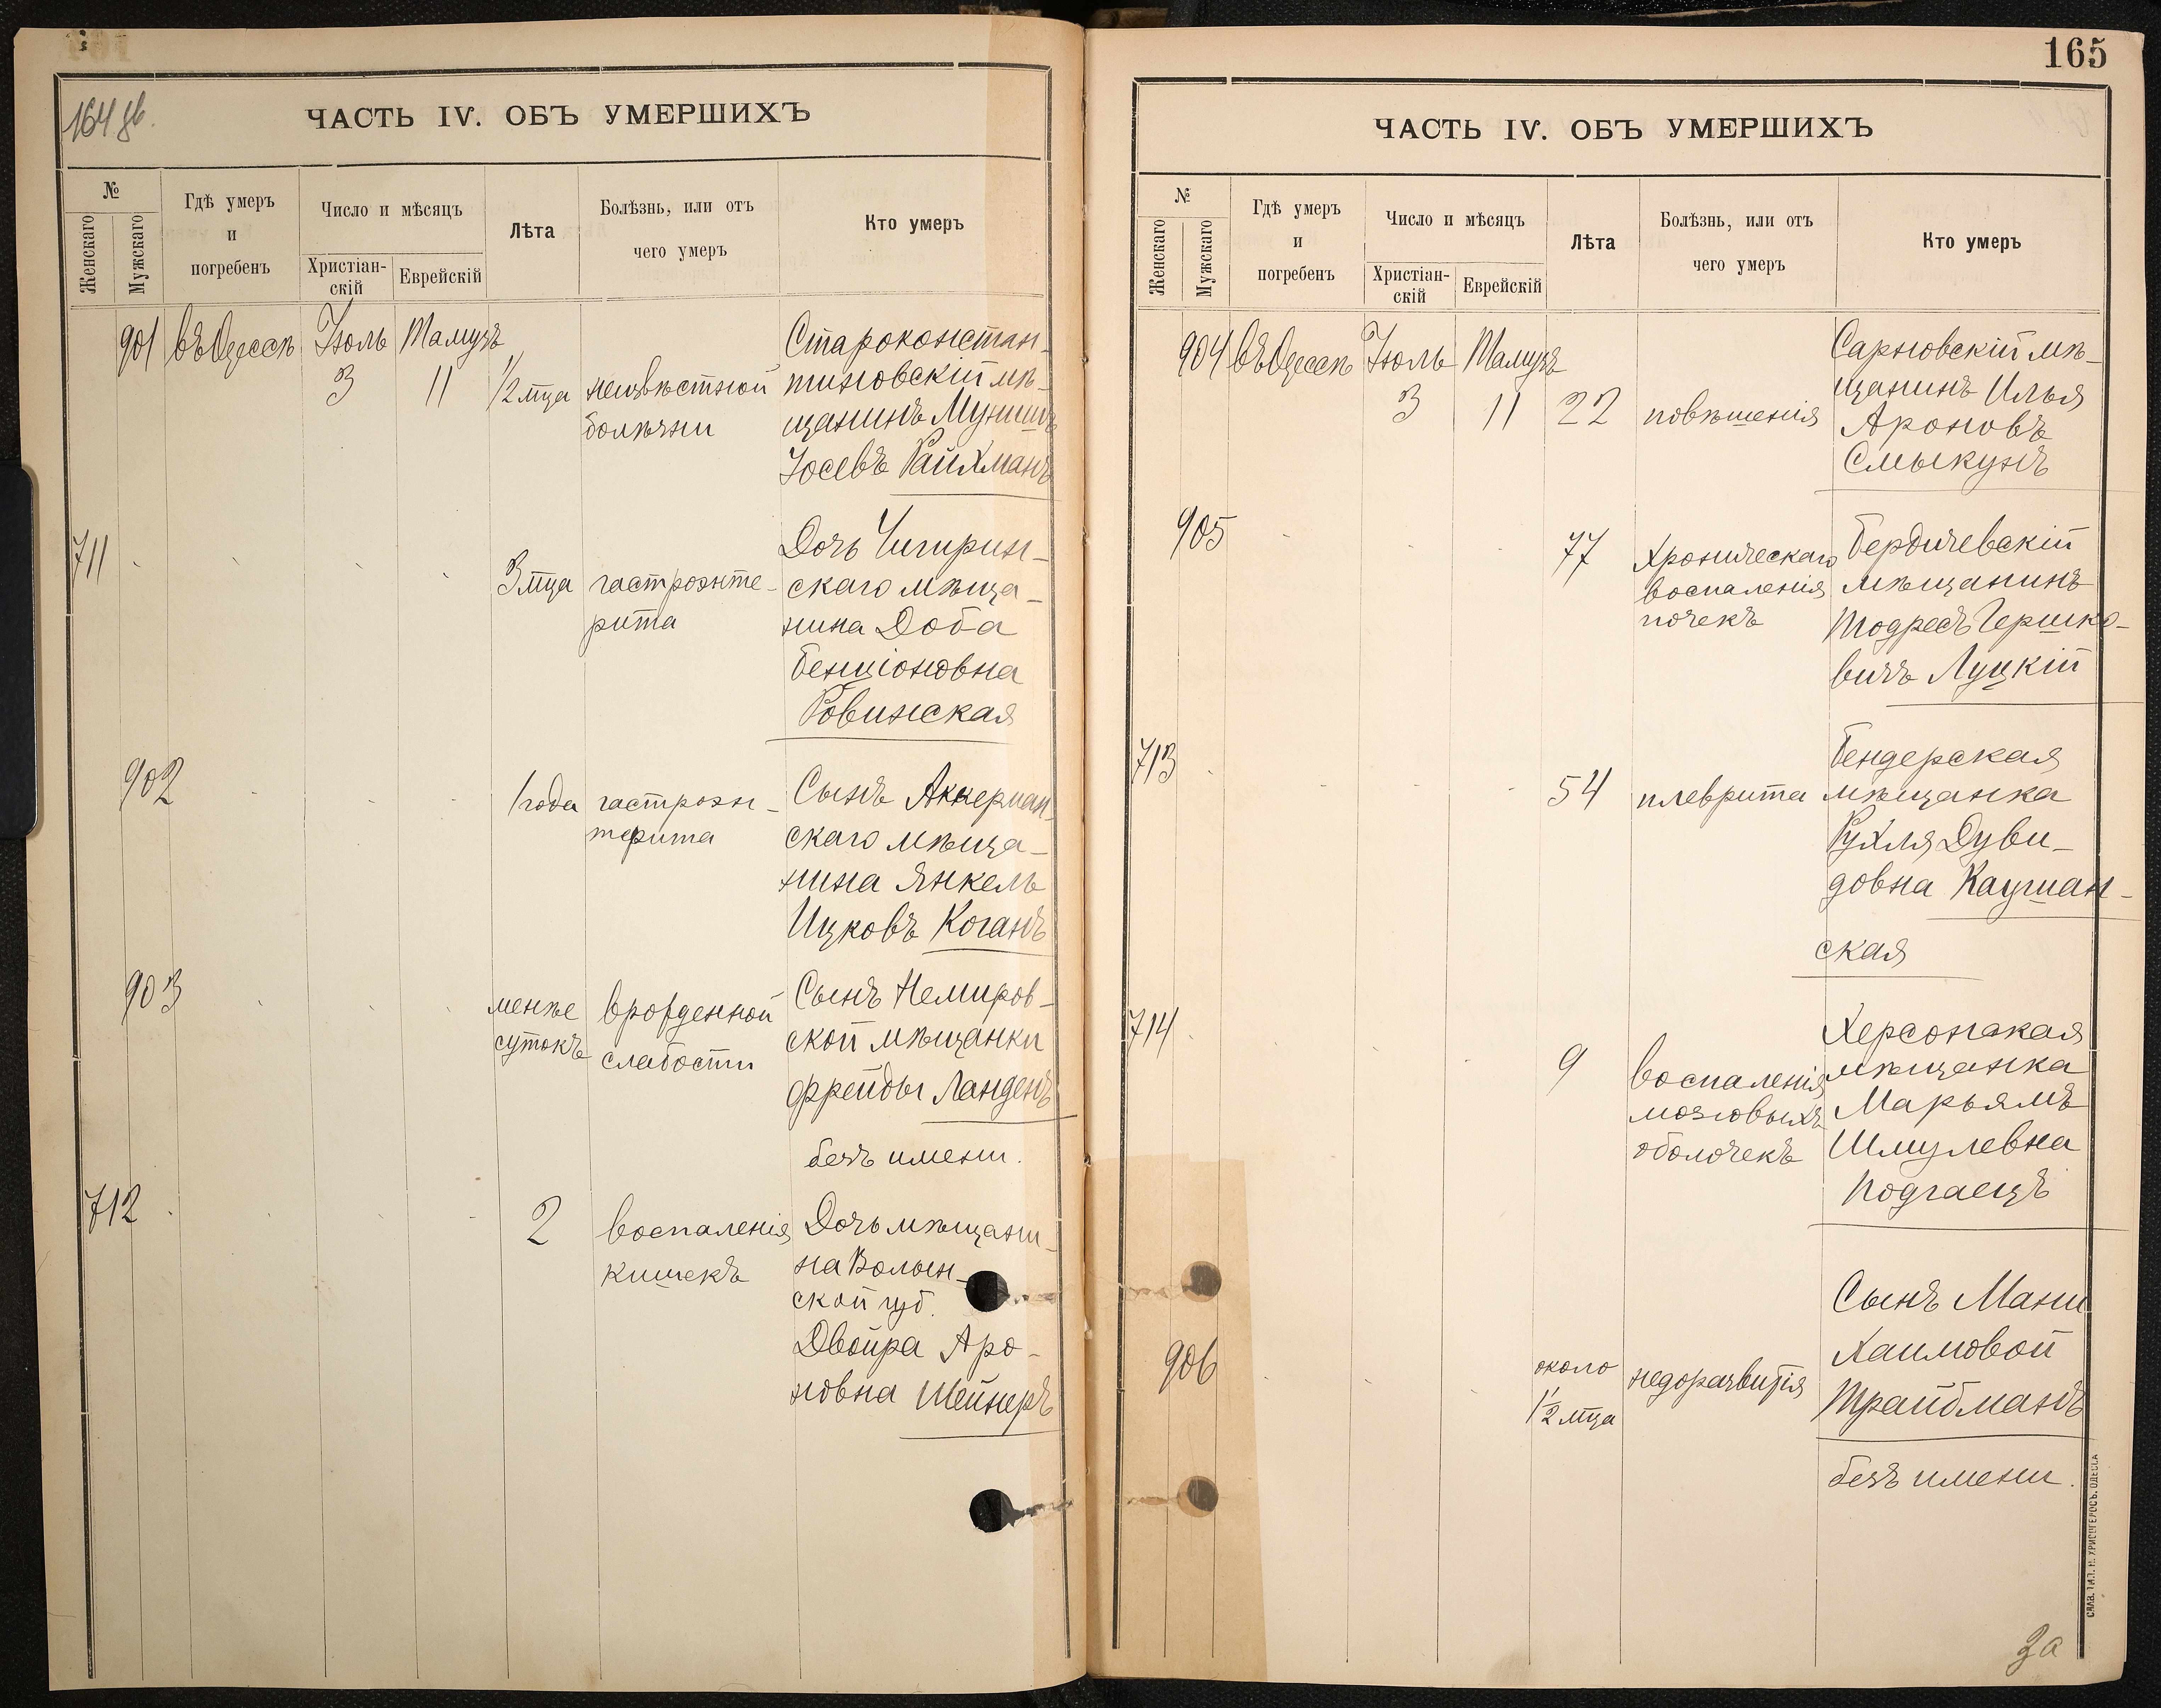 164 об.
ЧАСТЬ IV. ОБЪ УМЕРШИХЪ
№
Женскаго
Мужскаго
Гдѣ умеръ
и
погребенъ
Число и мѣсяцъ
Христіан-
скій
Еврейскій
Лѣта
Болѣзнь, или отъ
чего умеръ
Кто умеръ
901 въ Одессѣ Іюль Тамузъ
3 11 1/2 мца неизвѣстной
болѣзни
Староконстан-
тиновскій мѣ-
щанинъ Мунишъ
Іосевъ Райхманъ
711
3 мца гастроэнте-
рита
Дочь Чигирин-
скаго мѣща-
нина Доба
Бенціоновна
Ровинская
902
1 года гастроэн-
терита
Сынъ Аккерман-
скаго мѣща-
нина Янкель
Ицковъ Коганъ
903
менѣе
сутокъ
врожденной
слабости
Сынъ Немиров-
ской мѣщанки
Фрейды Ланденъ
безъ имени.
712
2 воспаленія
кишекъ
Дочь мѣщани-
на Волын-
ской губ.
Двойра Аро-
новна Шейнеръ
165
ЧАСТЬ IV. ОБЪ УМЕРШИХЪ
№
Женскаго
Мужскаго
Гдѣ умеръ
и
погребенъ
Число и мѣсяцъ
Христіан-
скій
Еврейскій
Лѣта
Болѣзнь, или отъ
чего умеръ
Кто умеръ
904 въ Одессѣ Іюль Тамузъ
3 11 22 повѣшенія
Сарновскій мѣ-
щанинъ Илья
Ароновъ
Смыкунъ
905
77 хроническаго
воспаленія
почекъ
Бердичевскій
мѣщанинъ
Тодресъ Гершко-
вичъ Луцкій
713
54 плеврита
Бендерская
мѣщанка
Рухля Дуви-
довна Каушан-
ская
714
9 воспаленія
мозговыхъ
оболочекъ
Херсонская
мѣщанка
Марьямъ
Шмулевна
Подгаецъ
906
около
1 1/2 мца
недоразвитія
Сынъ Мани
Хаимовой
Трайбманъ
безъ имени.
СЛАВ. ТИП. Н. ХРИСОГЕЛОСЪ. ОДЕССА
За